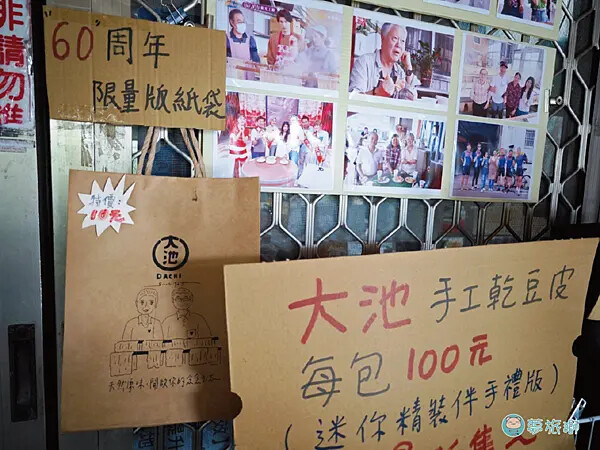 非請勿進
"60"周年
限量版紙袋
特價:
10元
大池
DACHI
大池 手工乾豆皮
每包 100元
(迷你精裝伴手禮版)